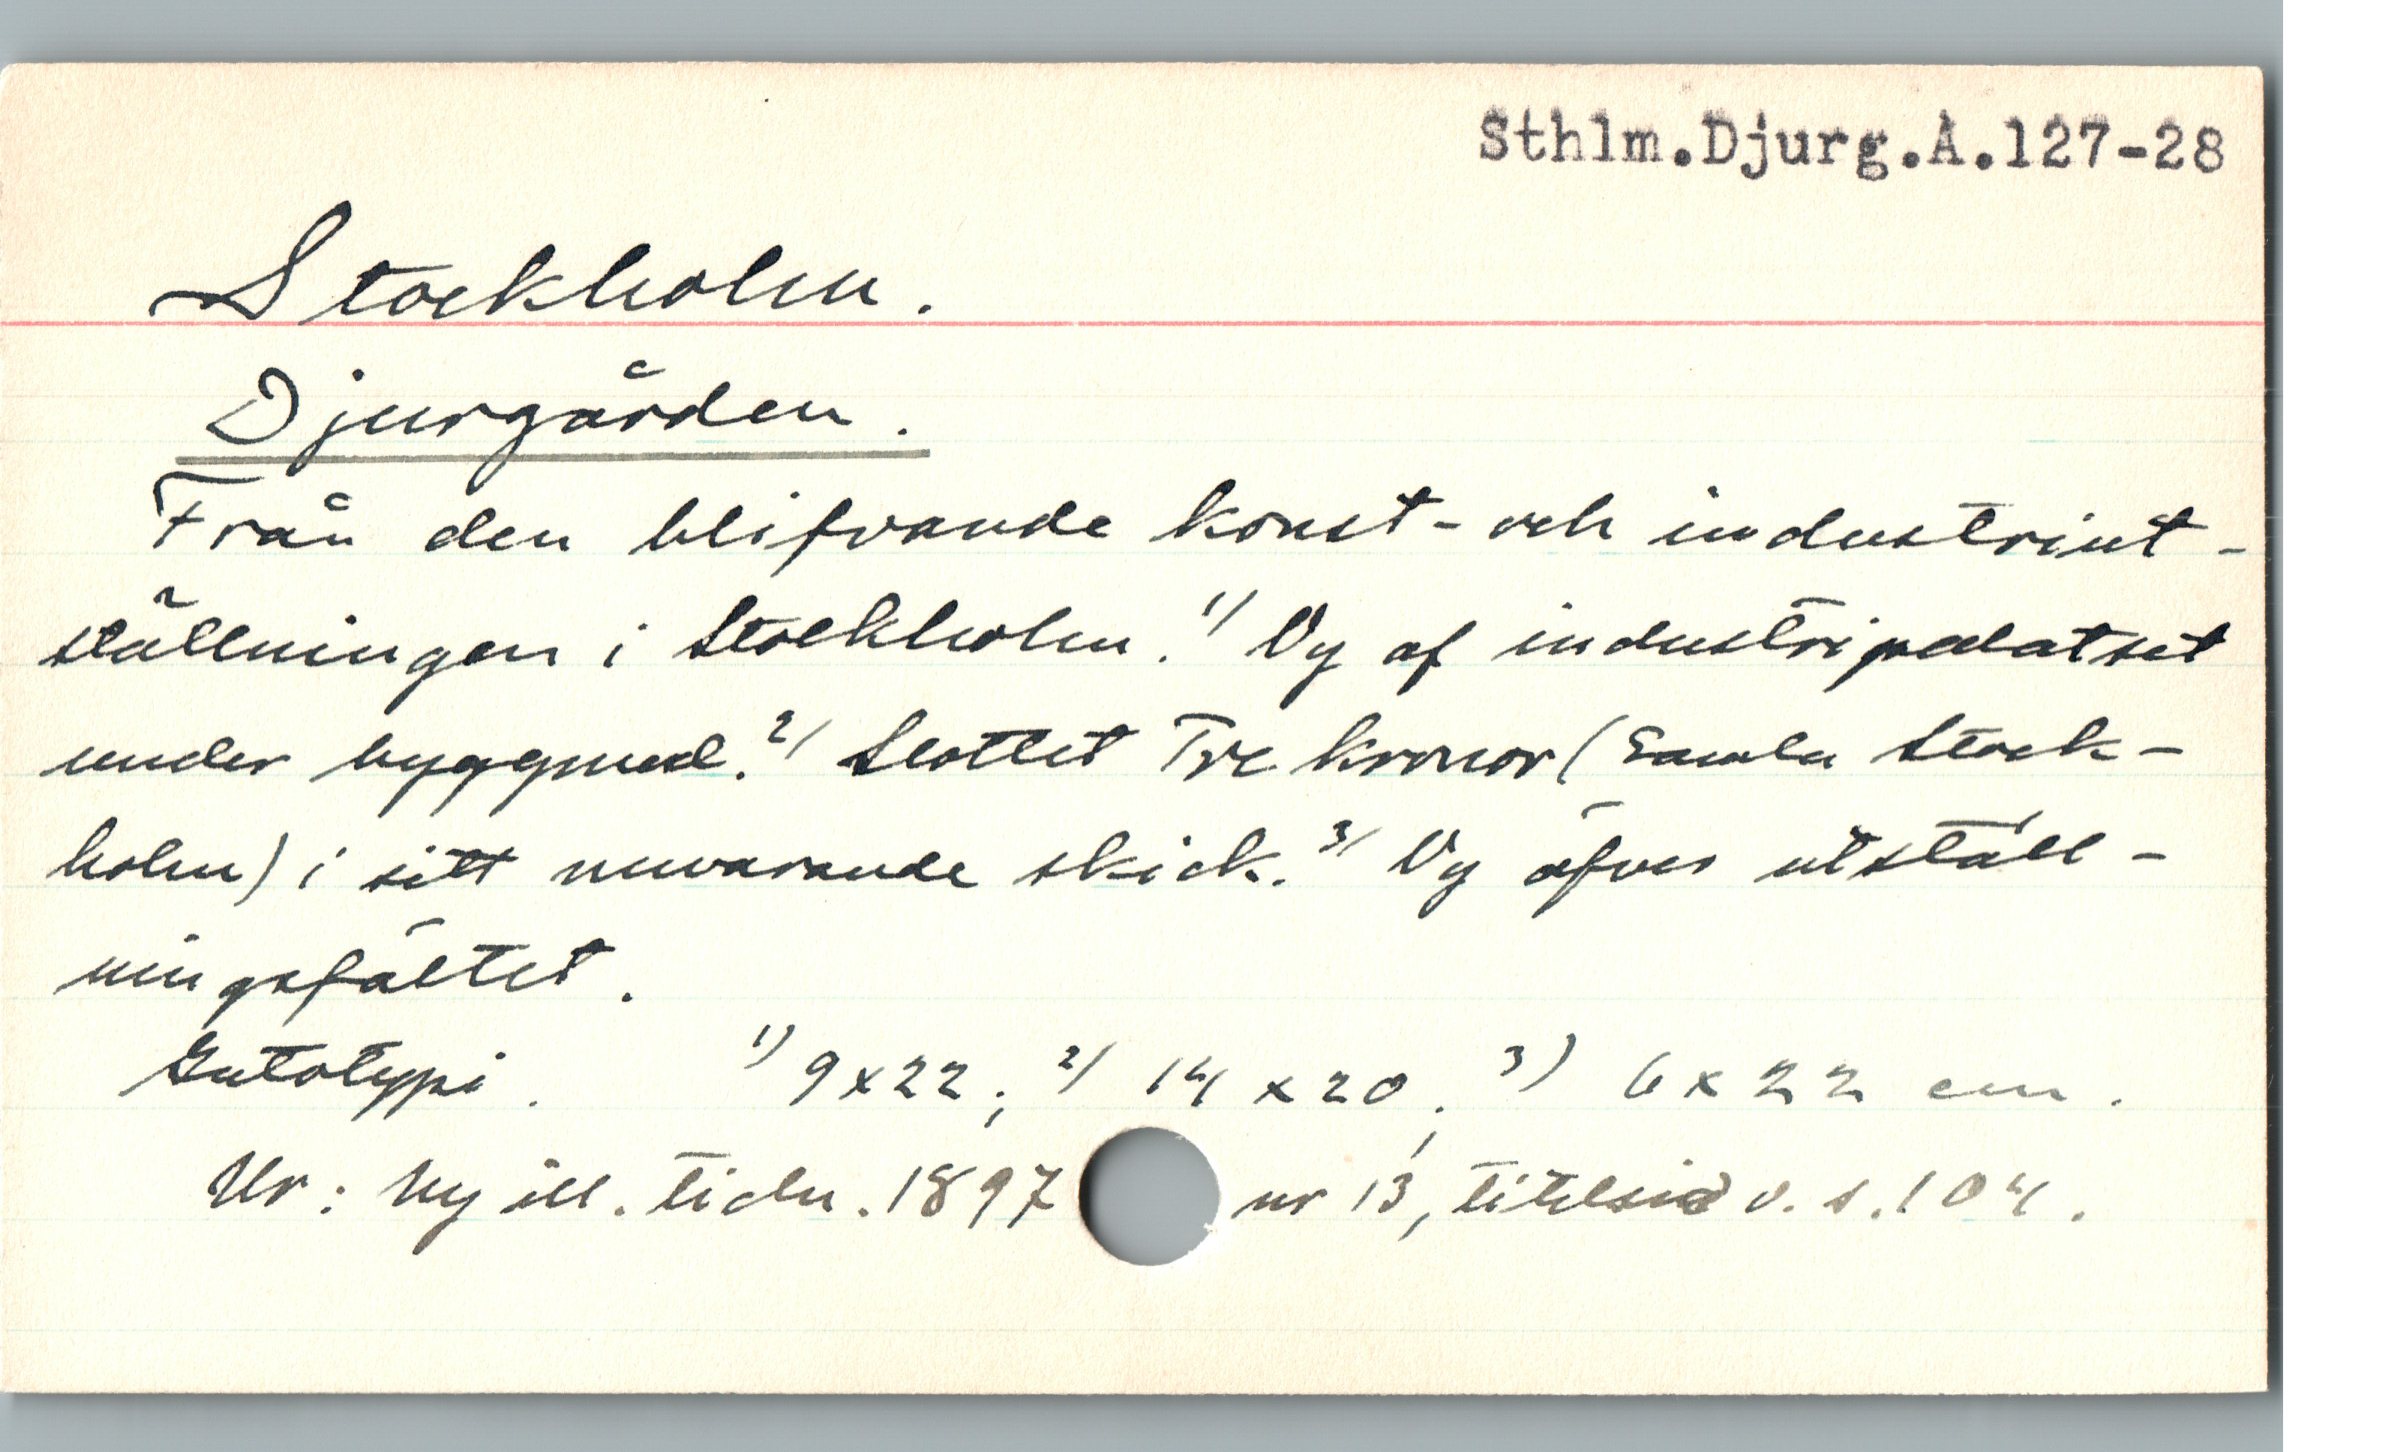 Sthlm.Djurg.A.127-28
Stockholm.
Djurgården.
Från den blifvande konst- och industriut-
ställningen i Stockholm. 1) Vy af industripalatset
under byggnad. 2) Slottet Tre kronor (Gamla Stock-
holm) i sitt nuvarande skick. 3) Vy äfver utställ-
ningsfältet.
Autotypi. 1) 9x22; 2) 14x20; 3) 6x22 cm.
Ur: Ny ill. tidn. 1897, nr 13, titelsid o. s. 104.